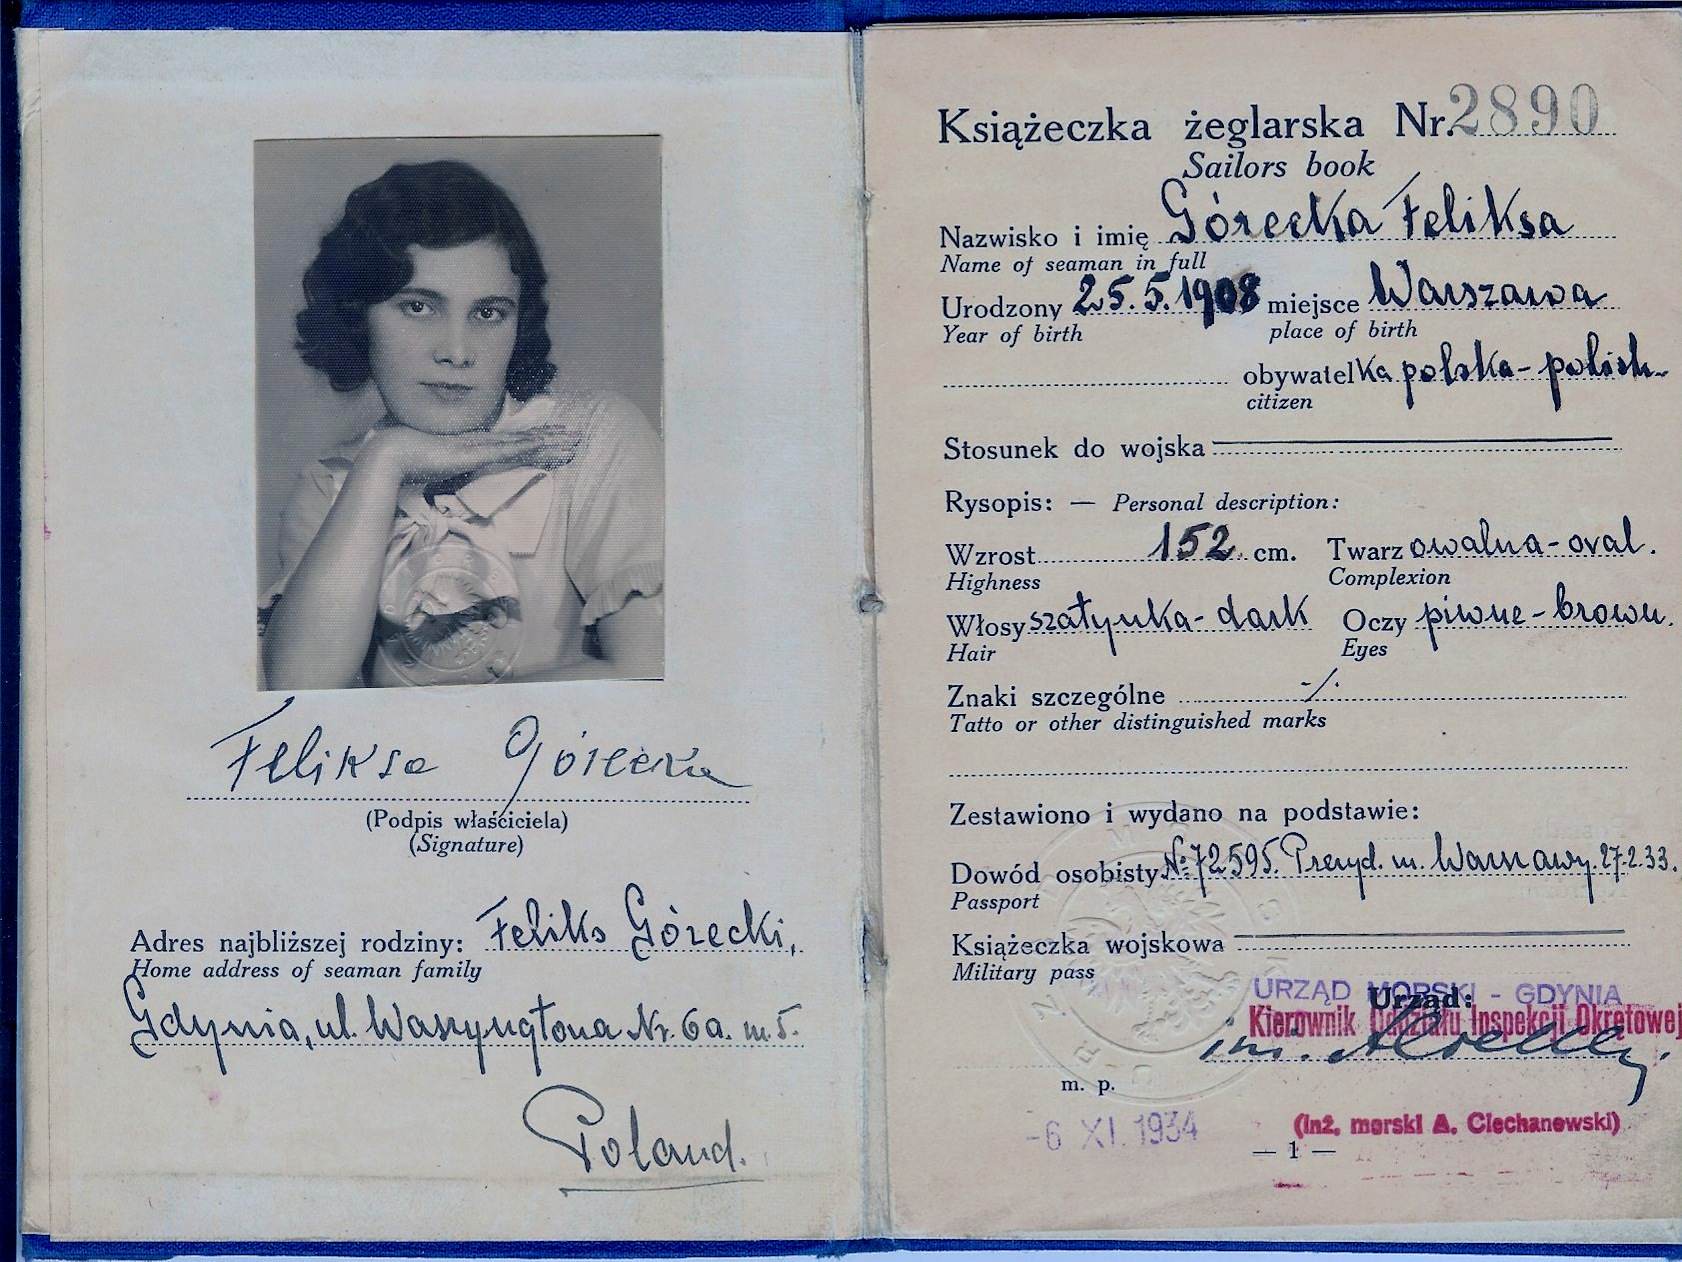 Feliksa Górecka
(Podpis właściciela)
(Signature)
Adres najbliższej rodziny: Feliks Górecki,
Home address of seaman family
Gdynia, ul. Waszyngtona Nr. 6a. m. 5.
Poland.
Książeczka żeglarska Nr. 2890
Sailors book
Nazwisko i imię Górecka Feliksa
Name of seaman in full
Urodzony 25.5.1908 miejsce Warszawa
Year of birth place of birth
obywatelka polska - polish
citizen
Stosunek do wojska
Rysopis: — Personal description:
Wzrost 152 cm. Twarz owalna - oval.
Highness Complexion
Włosy szatynka - dark Oczy piwne - brown.
Hair Eyes
Znaki szczególne -/.
Tatto or other distinguished marks
Zestawiono i wydano na podstawie:
Dowód osobisty №72595. Prezyd. m. Warszawy. 27.2.33.
Passport
Książeczka wojskowa
Military pass
URZĄD MORSKI - GDYNIA
Urząd:
Kierownik Oddziału Inspekcji Okrętowej
inż.
m. p.
-6 XI. 1934
(inż. morski A. Ciechanowski)
— 1 —